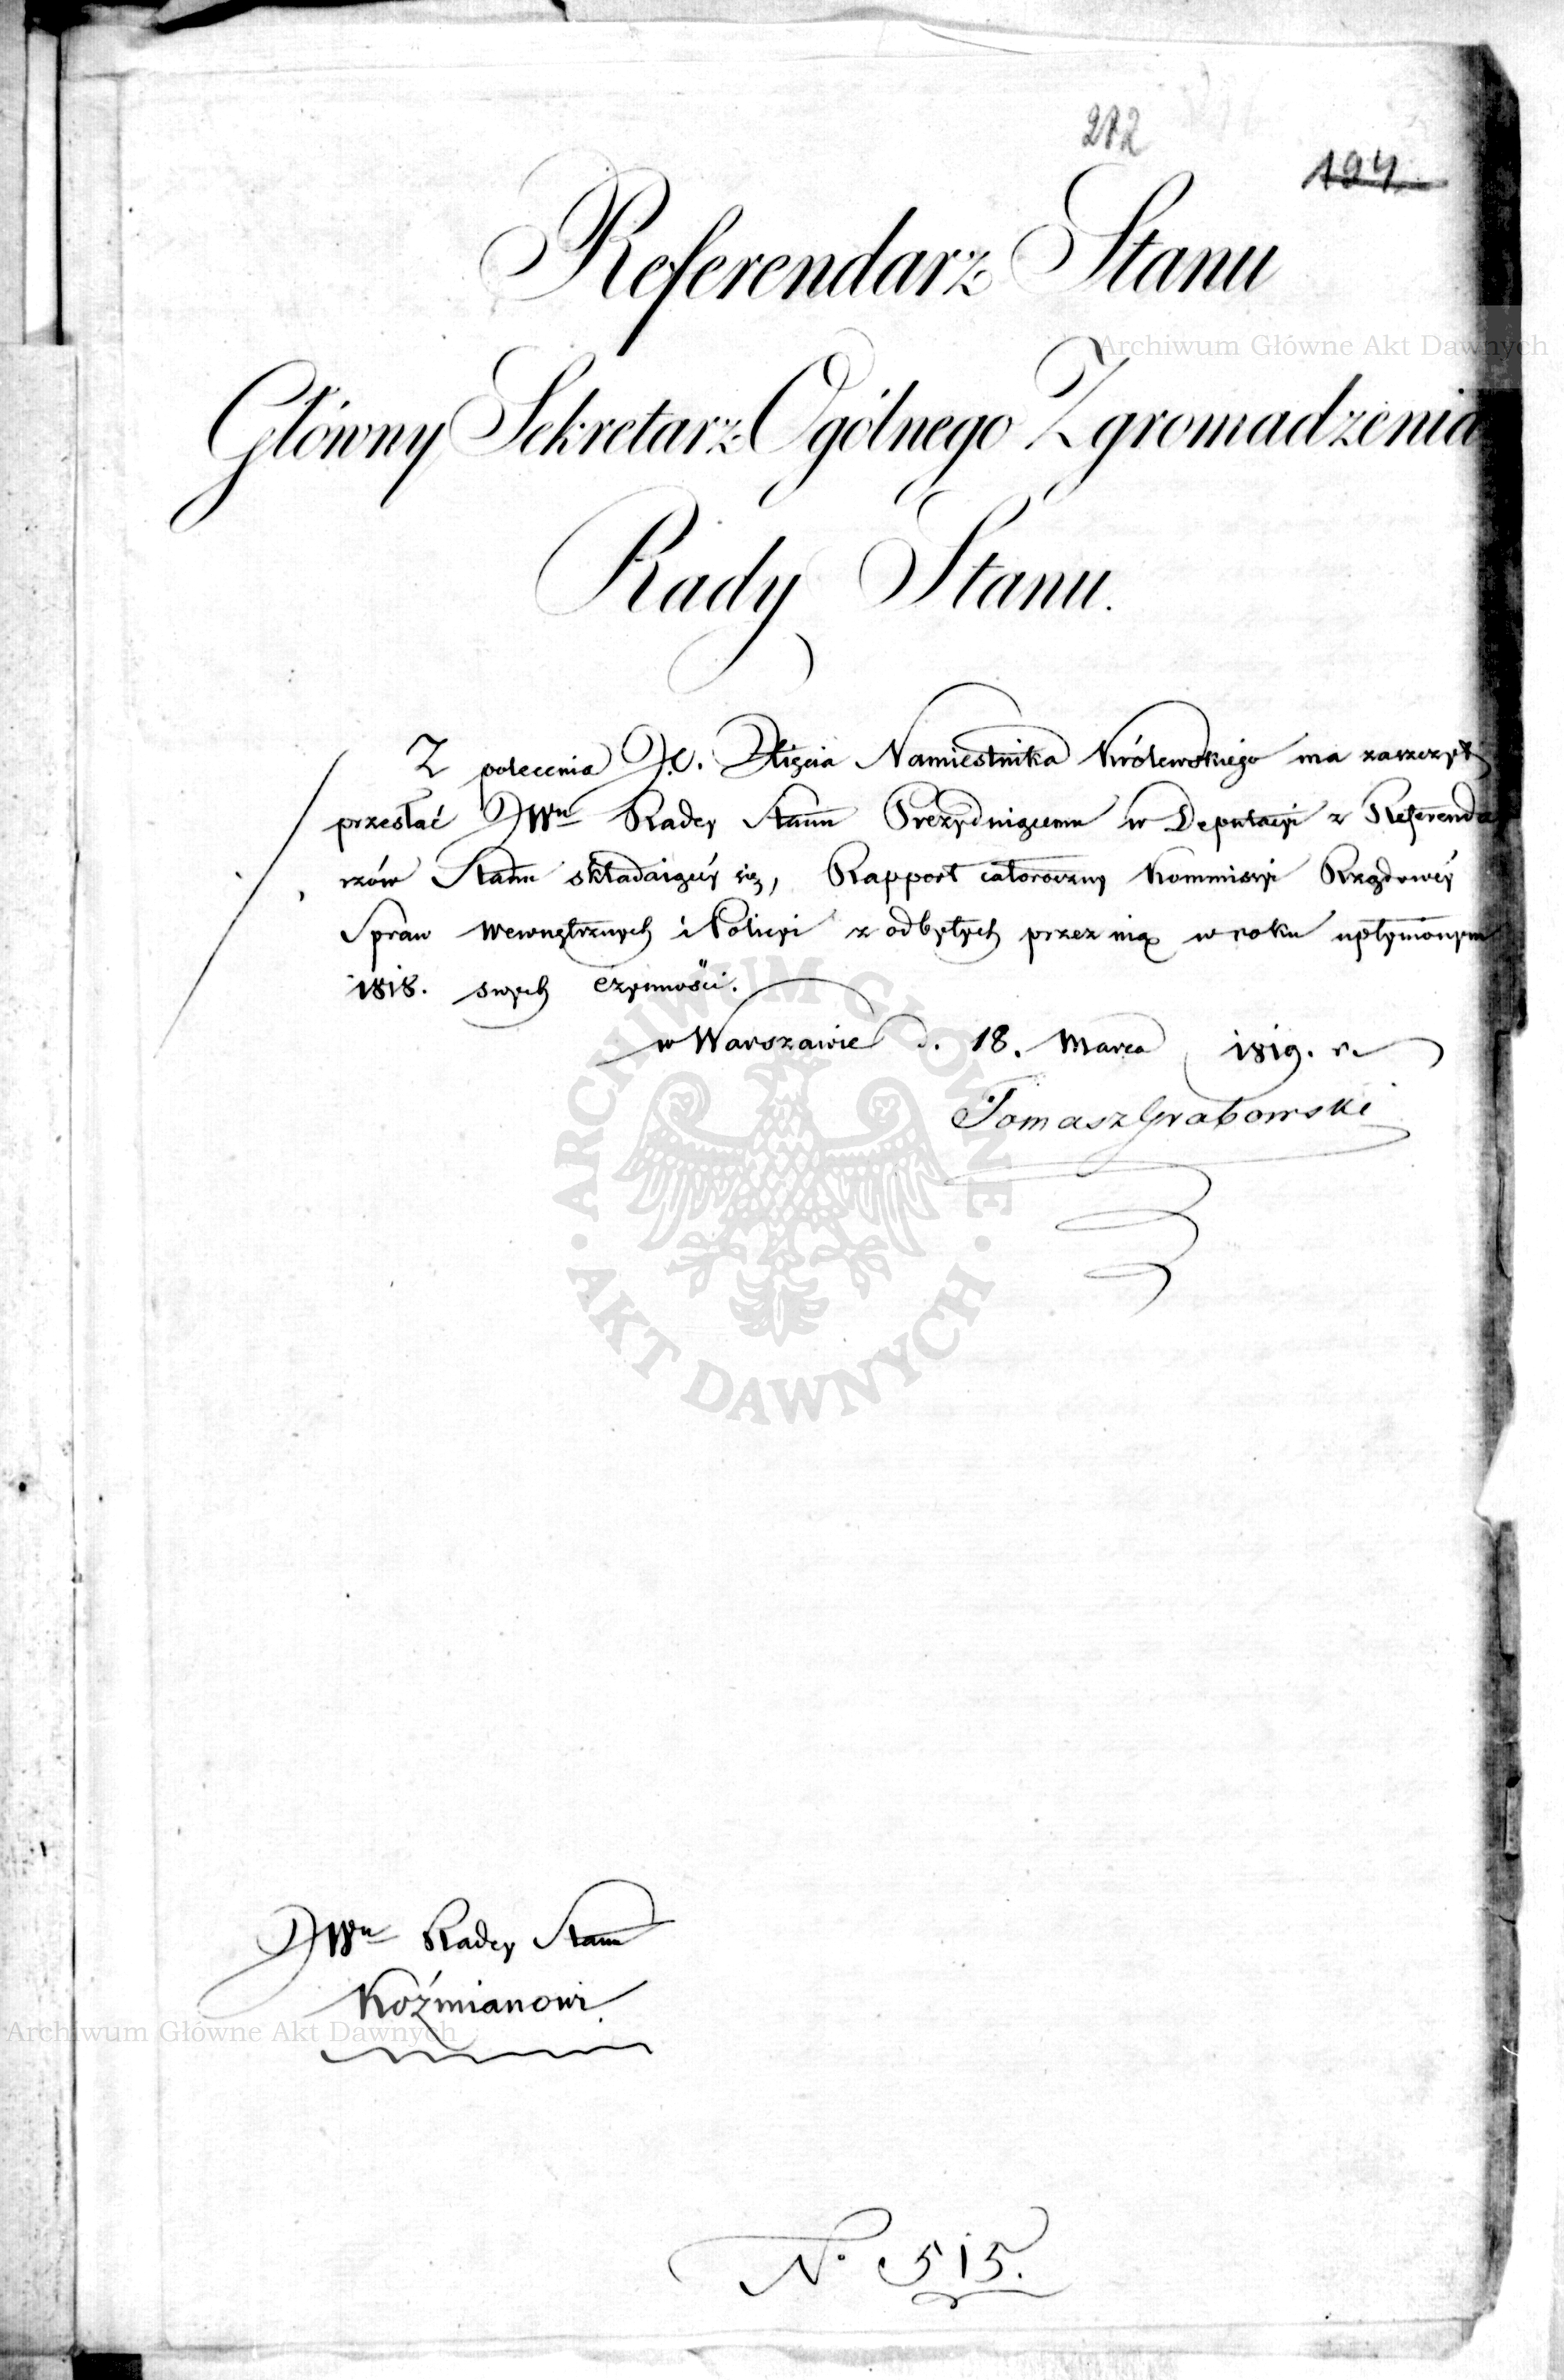 212
194
Referendarz Stanu
Główny Sekretarz Ogólnego Zgromadzenia
Rady Stanu.
Z polecenia J.O. Xięcia Namiestnika Królewskiego ma zaszczyt
przesłać JWu Radcy Stanu Prezyduiącemu w Deputacyi z Referenda
rzów Stanu składaiącéy się, Rapport całoroczny Kommissyi Rządowéy
Spraw Wewnętrznych i Policyi z odbytych przez nią w roku upłynionym
1818. swych czynności.
w Warszawie d. 18. Marca 1819. r.
Tomasz Grabowski
JWu Radcy Stanu
Koźmianowi.
No. 515.
Archiwum Główne Akt Dawnych
ARCHIWUM GŁÓWNE · AKT DAWNYCH ·
Archiwum Główne Akt Dawnych